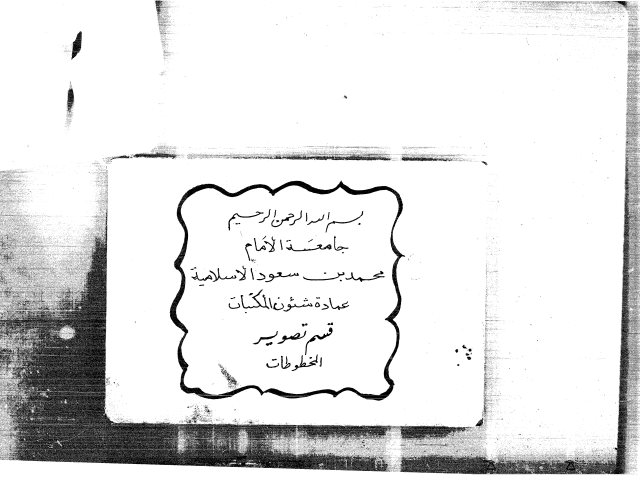 بسم الله الرحمن الرحيم
جامعة الأمام
محمد بن سعود الاسلامية
عمادة شئون المكتبات
قسم تصوير
المخطوطات